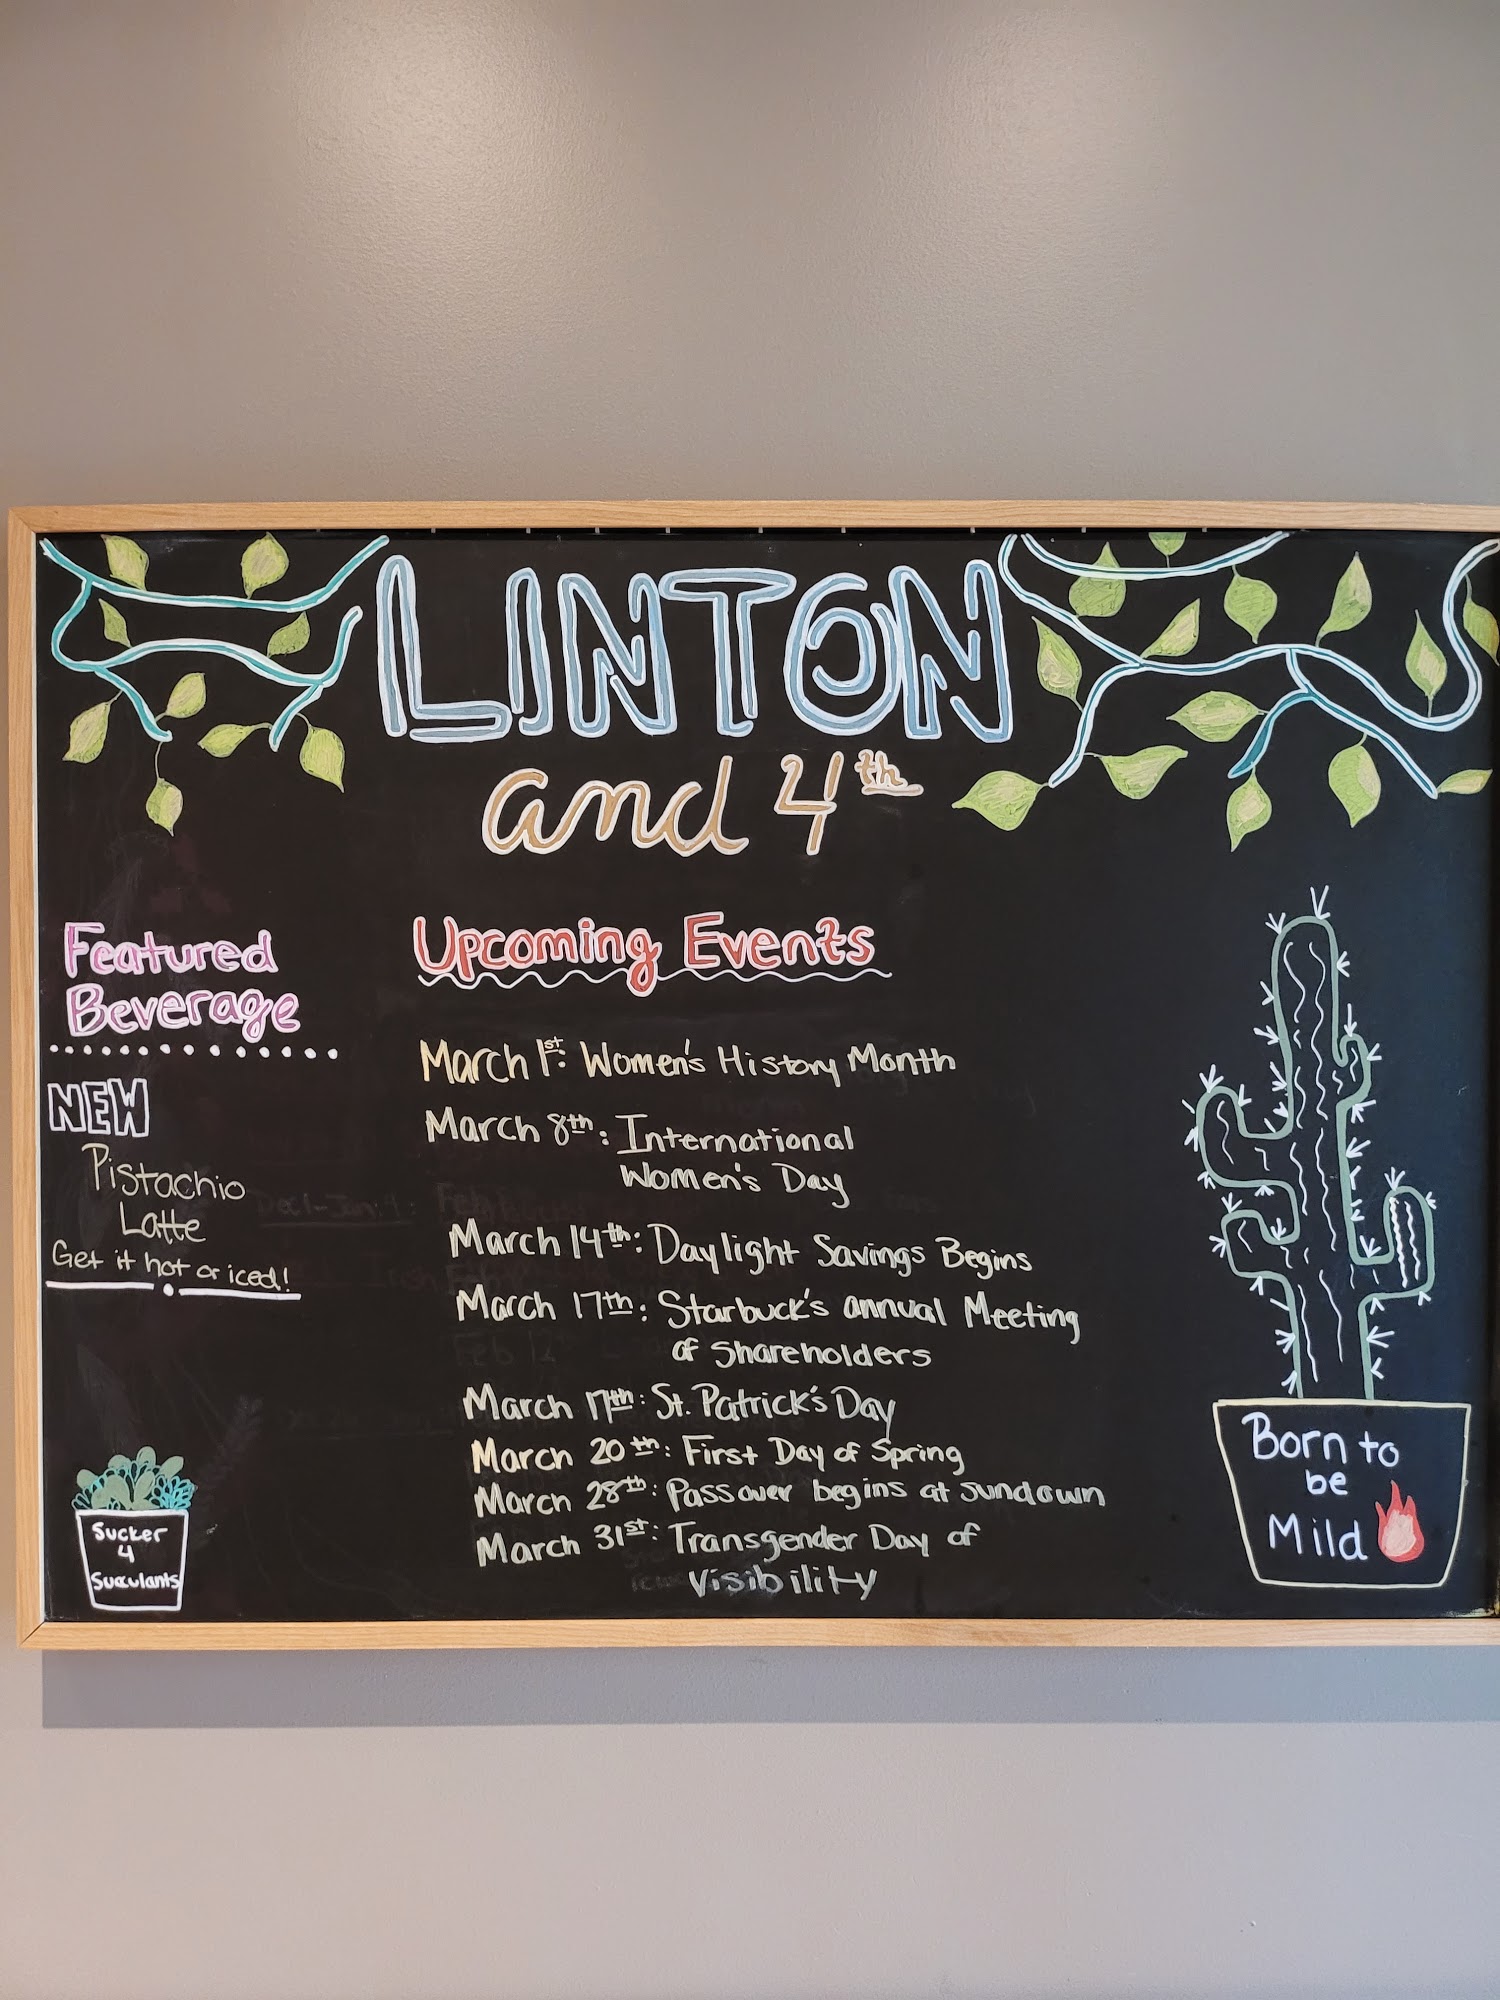 LINTON
and 4th
Featured
Beverage
NEW
Pistachio
Latte
Get it hot or iced!
Upcoming Events
March 1st: Women's History Month
March 8th: International
Women's Day
March 14th: Daylight Savings Begins
March 17th: Starbuck's annual Meeting
of Shareholders
March 17th: St. Patrick's Day
March 20th: First Day of Spring
March 28th: Passover begins at sundown
March 31st: Transgender Day of
Visibility
Sucker
4
Succulants
Born to
be
Mild